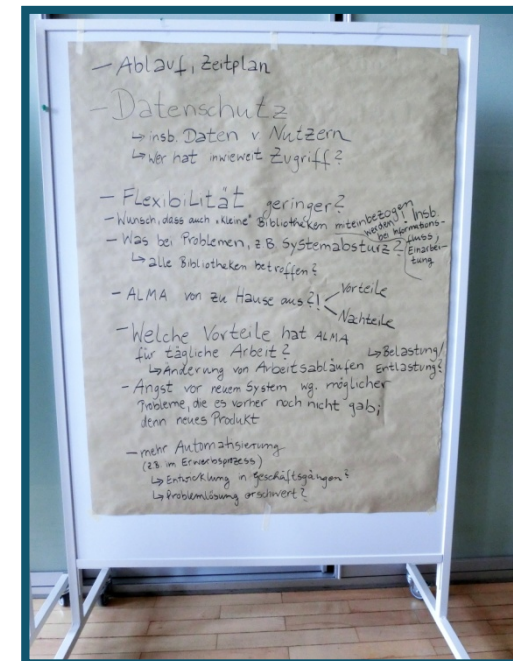 — Ablauf, Zeitplan
— Datenschutz
↳ insb. Daten v Nutzern
↳ Wer hat inwieweit Zugriff?
— Flexibilität geringer?
— Wunsch, dass auch „kleine" Bibliotheken miteinbezogen
werden! Insb.
bei Informations-
fluss,
Einarbei-
tung
— Was bei Problemen, z B Systemabsturz?
↳ alle Bibliotheken betroffen?
— ALMA von zu Hause aus?!
Vorteile
Nachteile
— Welche Vorteile hat ALMA
für tägliche Arbeit?
↳ Belastung/
Entlastung?
↳ Änderung von Arbeitsabläufen
— Angst vor neuem System wg. möglicher
Probleme, die es vorher noch nicht gab;
denn neues Produkt
— mehr Automatisierung
(z.B. im Erwerbsprozess)
↳ Entwicklung in Geschäftsgängen?
↳ Problemlösung erschwert?